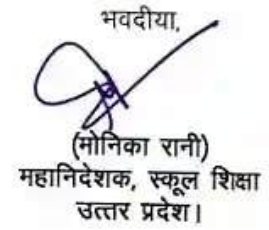 भवदीया,
(मोनिका रानी)
महानिदेशक, स्कूल शिक्षा
उत्तर प्रदेश।